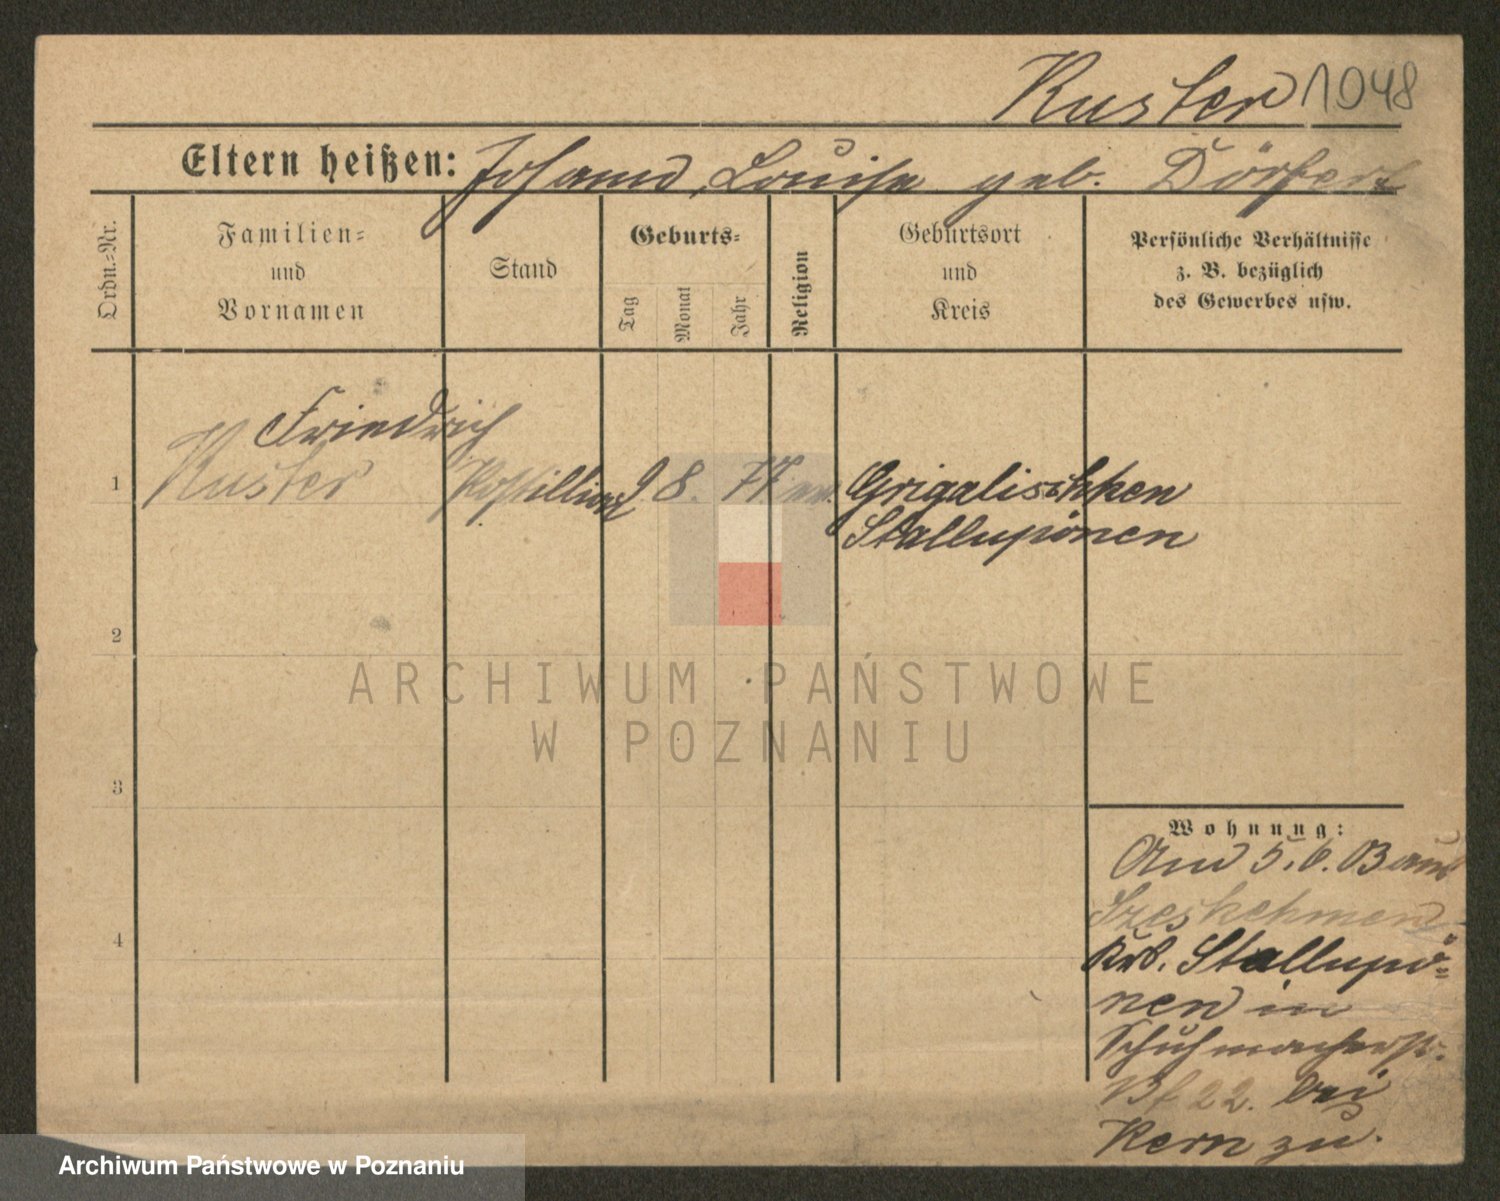 Kuster 1048
Eltern heißen: Johann, Louise geb. Dörfert
Ordn.-Nr.
Familien-
und
Vornamen
Stand
Geburts-
Tag
Monat
Jahr
Religion
Geburtsort
und
Kreis
Persönliche Verhältnisse
z. B. bezüglich
des Gewerbes usw.
Friedrich
1 Kuster Postillion 9. 8. 77 ev. Grigalischken
Stallupönen
2
ARCHIWUM PAŃSTWOWE
W POZNANIU
3
Wohnung:
Am 5.6.03 aus
4
Krs. Stallupö-
nen in
Schuhmacherstr.
22. bei
Kern zu.
Archiwum Państwowe w Poznaniu